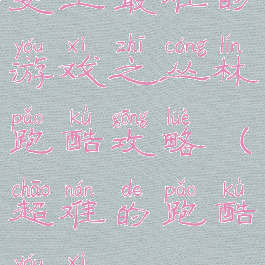 史上最难的
yóu xì zhī cóng lín
游戏之丛林
pǎo kù gōng lüè
跑酷攻略（
chāo nán de pǎo kù
超难的跑酷
yóu xì